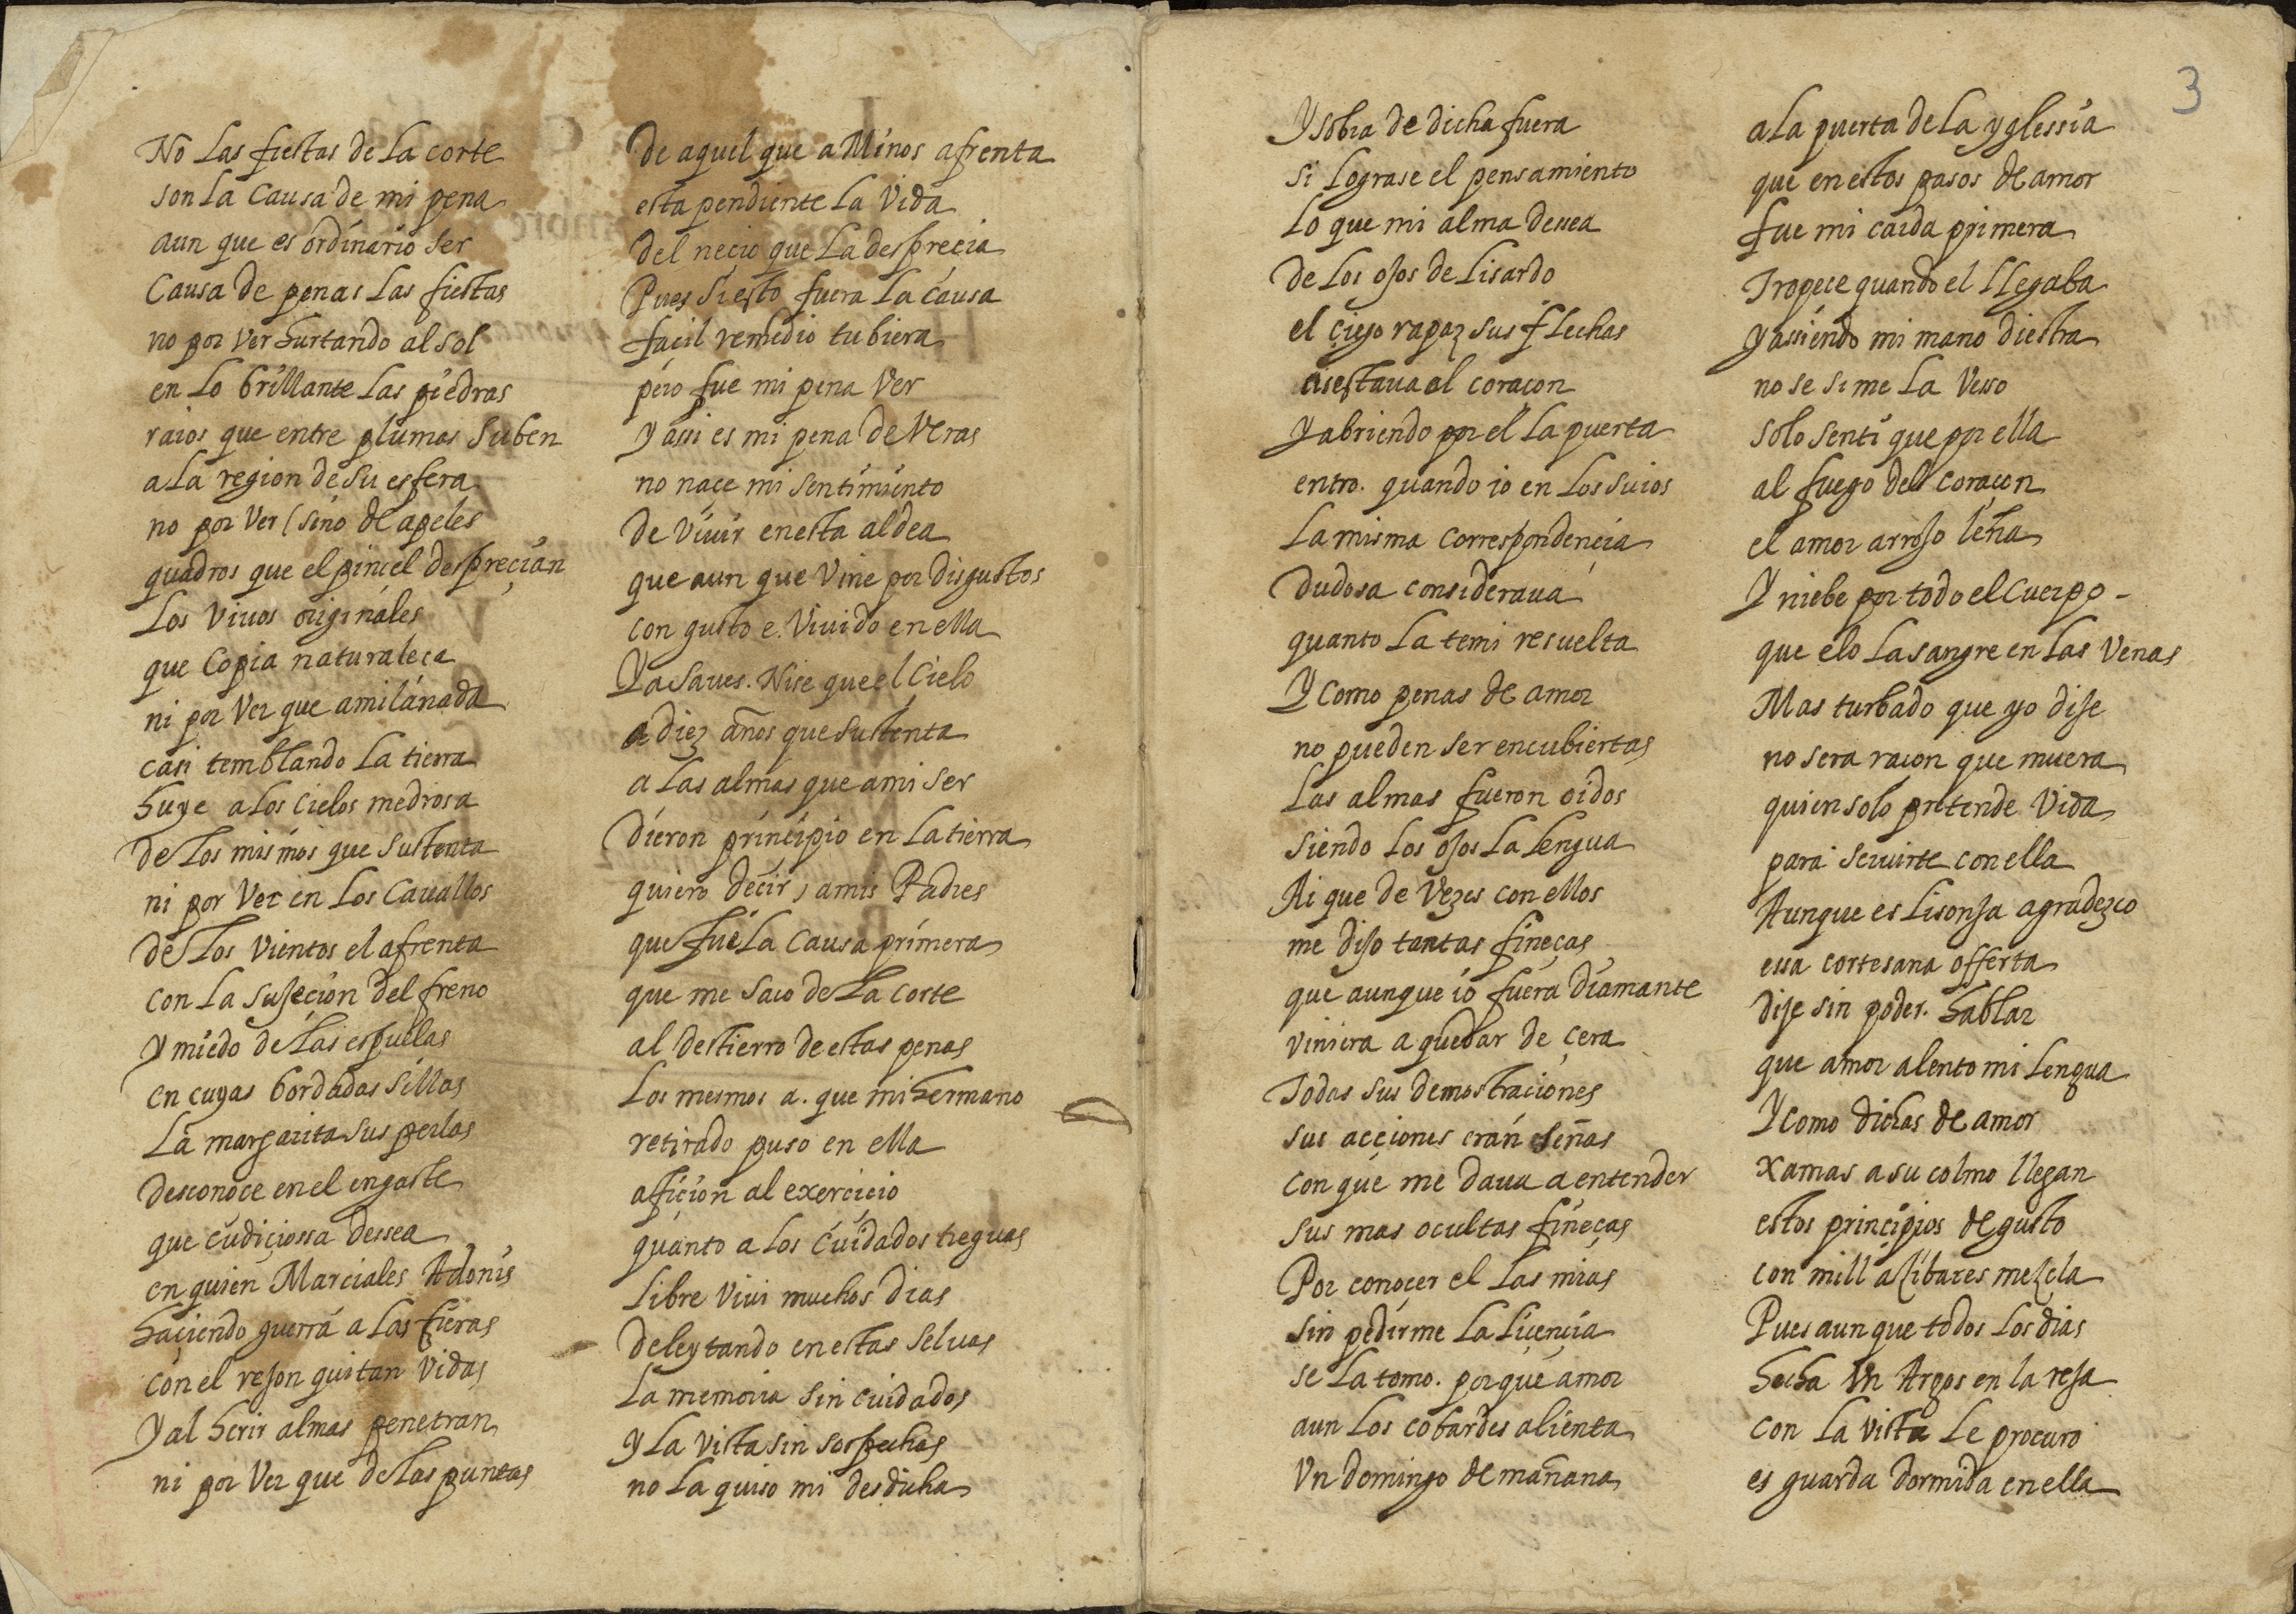 No Las fiestas de La corte
son La Causa de mi pena
aun que es ordinario ser
Causa de penas Las fiestas
no por Ver hurtando al Sol
en Lo brillante Las piedras
raios que entre plumas Suben
a La region de Su esfera
no por Ver (sino de apeles
quadros que el pincel despreçian
Los Viuos originales
que Copia naturaleça
ni por Ver que amilanada
casi temblando La tierra
huye a Los Cielos medrosa
de Los mismos que Sustenta
ni por Ver en Los Cauallos
de Los Vientos el afrenta
con La Sujeçion del freno
Y miedo de Las espuelas
en cuyas bordadas Sillas
La margarita Sus perlas
desconoce en el engaste
que cudiçiossa dessea
en quien Marciales Adonis
haçiendo guerra a Las fieras
con el rejon quitan Vidas
Y al herir almas penetran
ni por Ver que de Las puntas
De aquel que a Minos afrenta
esta pendiente La Vida
del neçio que La despreçia
Pues Si esto fuera La Causa
façil remedio tubiera
pero fue mi pena Ver
Y assi es mi pena de Veras
no naçe mi Sentimiento
de Viuir en esta aldea
que aun que Vine por disgustos
con gusto e. Viuido en ella
Ya Saues. Nise que el Cielo
a diez años que Sustenta
a Las almas que a mi Ser
dieron principio en La tierra
quiero decir, a mis Padres
que fue La Causa primera
que me Saco de La Corte
al destierro de estas penas
Los mesmos a. que mi hermano
retirado puso en ella
afiçion al exerciçio
quanto a Los Cuidados treguas
Libre Viui muchos dias
deleytando en estas Seluas
La memoria Sin Cuidados
Y La Vista sin sospechas
no La quiso mi desdicha
Y sobra de dicha fuera
Si Lograse el pensamiento
Lo que mi alma desea
de Los ojos de Lisardo
el çiego rapaz sus fLechas
asestaua al coraçon
Y abriendo por el La puerta
entro. quando io en Los Suios
La misma Correspondençia
Dudosa consideraua
quanto La temi resuelta
Y Como penas de amor
no pueden Ser encubiertas
Las almas fueron oidos
Siendo Los ojos La Lengua
Ai que de Vezes con ellos
me dijo tantas fineças
que aunque io fuera Diamante
Viniera a quedar de çera
Todas Sus demostraciones
sus acçiones eran señas
con que me daua a entender
sus mas ocultas fineças
Por conoçer el Las mias
Sin pedirme La Liçençia
se La tomo. porque amor
aun Los cobardes alienta
Vn domingo de mañana
3
a La puerta de La yglessia
que en estos pasos de amor
fue mi caida primera
Tropeçe quando el LLegaba
Y assiendo mi mano diestra
no se Si me La Vesso
solo Senti que por ella
al fuego del Coraçon
el amor arrojo leña
Y niebe por todo el Cuerpo -
que elo La sangre en Las Venas
Mas turbado que yo dije
no sera raçon que muera
quien solo pretende Vida
para Seruirte con ella
Aunque es Lisonja agradezco
essa cortesana offerta
dije Sin poder. hablar
que amor alento mi Lengua
Y Como dichas de amor
xamas a su colmo llegan
estos principios de gusto
con mill açibares mezcla
Pues aun que todos Los dias
hecha Vn Argos en la reja
con La Vista Le procuro
es guarda dormida en ella